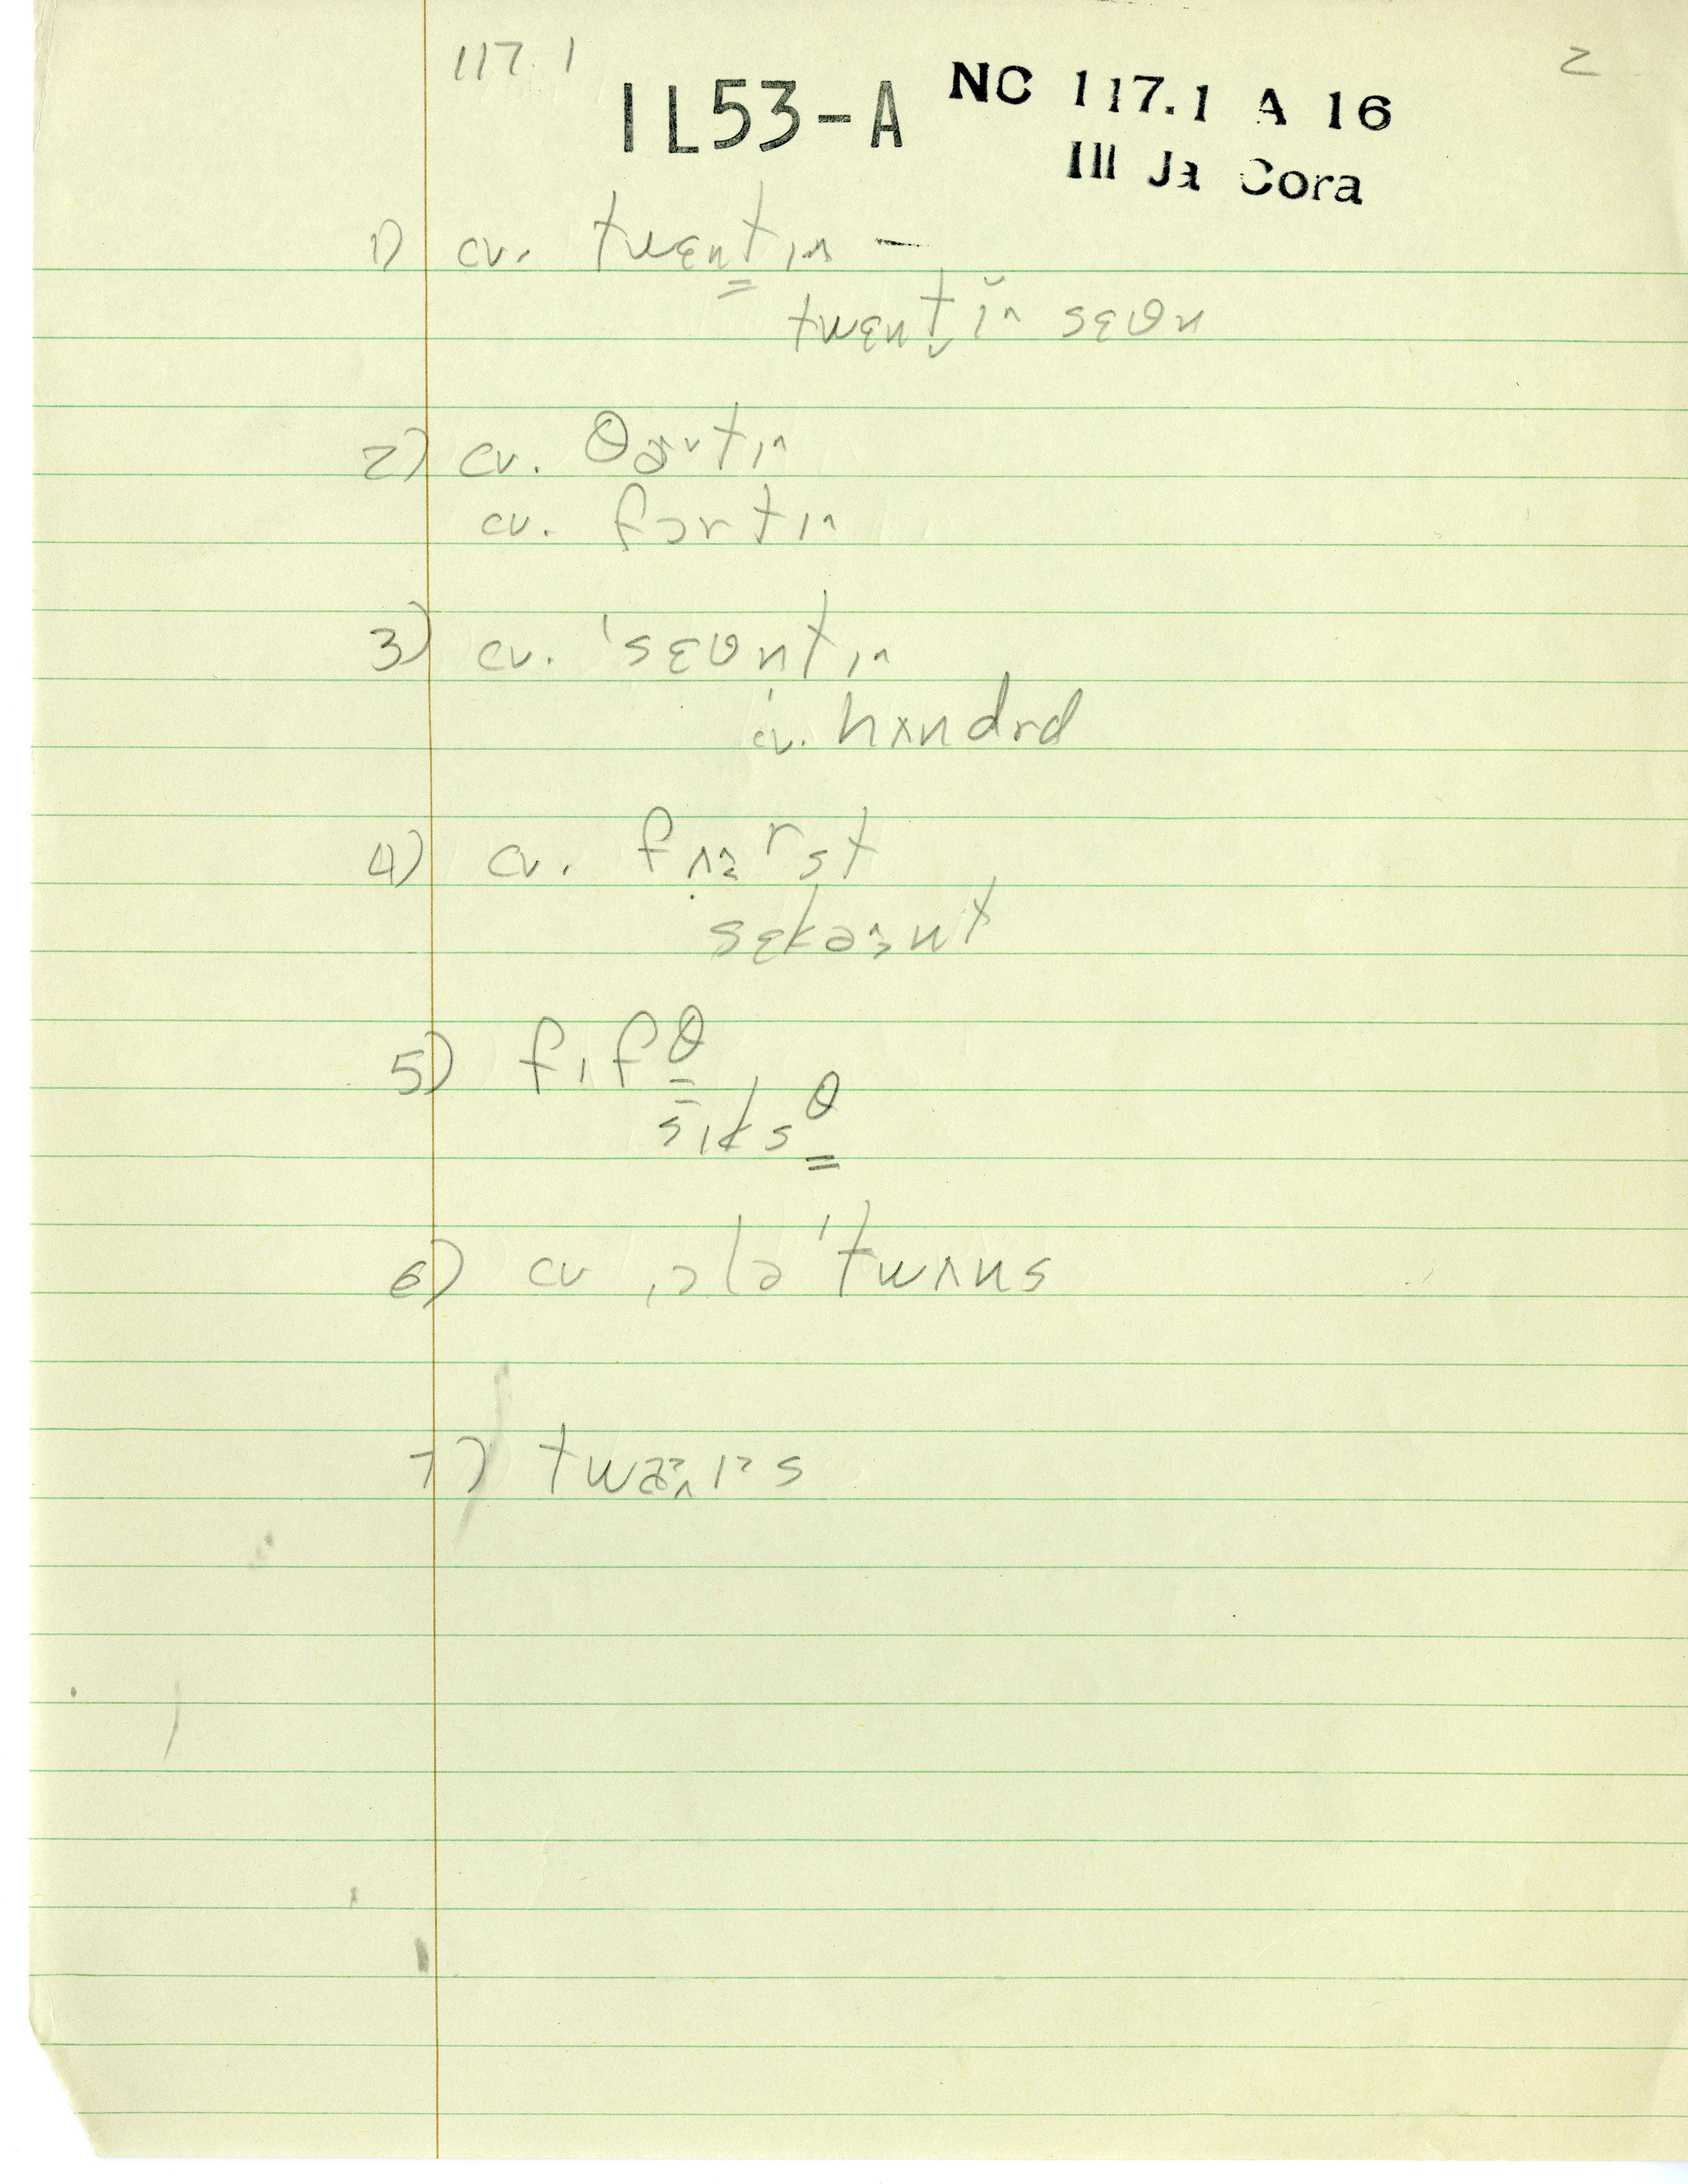 117.1 2
IL53-A NC 117.1 A 16
Ill Ja Cora
1) cv. twɛntɪ^ –
twɛnt̬ɪ̆^ sɛvən
2) cv. θɚtɪ^
cv. fɔrtɪ^
3) cv. ˈsɛvn̩tɪ^
cv. hʌndrd
4) cv.
sɛkənt
5) fɪfθ
sɪksθ
6) cv ˌɔləˈtwʌns
7)